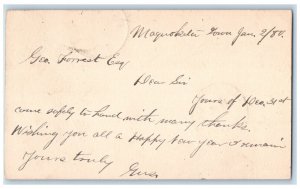 Maquoketa Iowa Jan. 2/80.
Geo. Forrest Esq
Dear Sir
Yours of Dec. 31st
come safely to hand with many thanks.
Wishing you all a Happy New Year I remain
Yours truly